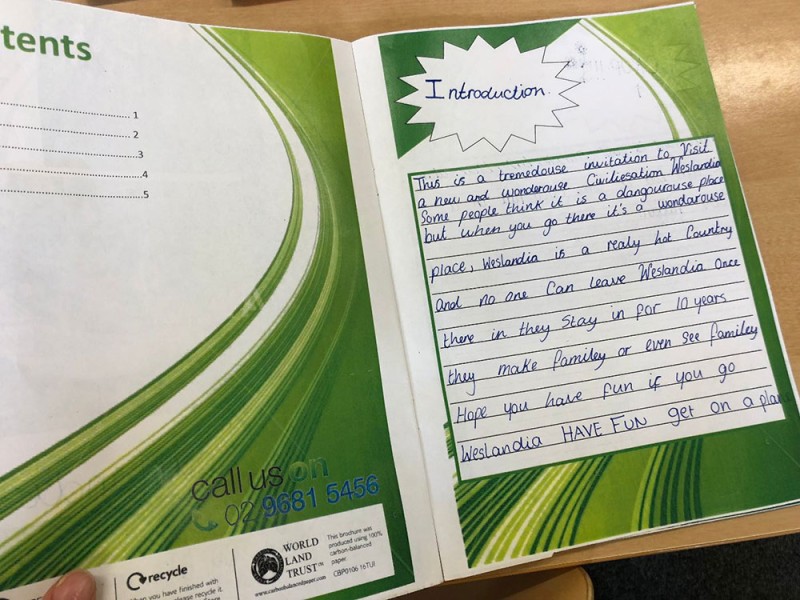 tents
1
2
3
4
5
call us on
02 9681 5456
recycle
you have finished with
please recycle
WORLD
LAND
TRUST™
www.carbonbalancedpaper.com
This brochure was
produced using 100%
carbon-balanced
paper.
CBP0106 16TUI
Introduction.
This is a tremedouse invitation to Visit
a new and wonderouse Civiliesation Weslandia
Some people think it is a dangourouse place
but when you go there it's a wondarouse
place, Weslandia is a realy hot Country
and no one Can leave Weslandia Once
there in they Stay in for 10 years
they make familey or even see familey
Hope you have fun if you go
Weslandia HAVE FUN get on a plane